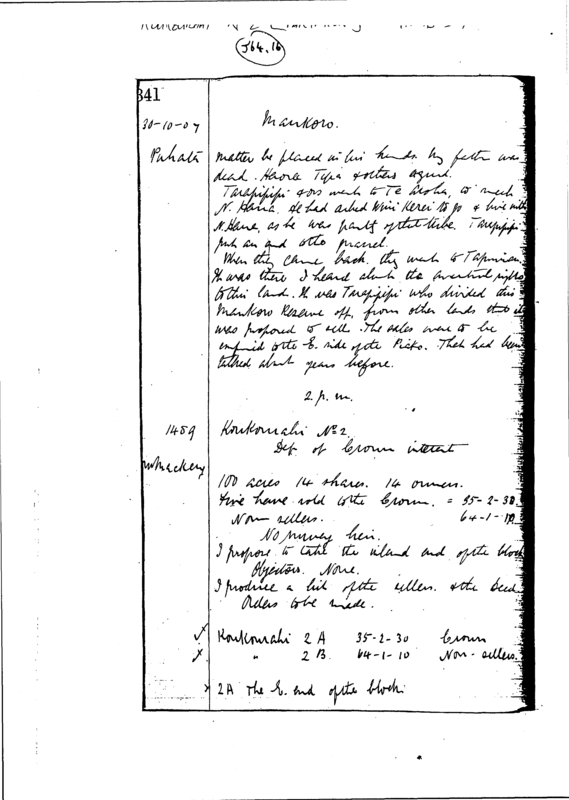 J64.16
341
30-10-07 Mankoro.
Puhata matter be placed in his hands. My father was
dead. Haora Tipa & others agreed.
Tarapipipi & ors went to Te Aroha, to meet
N. Hana. He had asked Wini Kerei to go & live with
N. Hana, as he was part of that tribe. Tarapipipi
put an end to the quarrel.
When they came back they went to
It was there I heard about the ancestral rights
to this land. It was Tarapipipi who divided this
Mankoro Reserve off from other lands that it
was proposed to sell. The sales were to be
confined to the E. side of the Piako. That had been
talked about years before.
2 p.m.
1459 Koukourahi No 2
Def. of Crown interest
Mackay
100 acres 14 shares. 14 owners.
Five have sold to the Crown. = 35-2-30
Non sellers. 64-1-10
No survey lien.
I propose to take the inland end of the block
Objectors. None.
I produce a list of the sellers. & the Deed
Orders to be made.
Koukourahi 2 A 35-2-30 Crown
" 2 B 64-1-10 Non-sellers.
2A The E. end of the block.